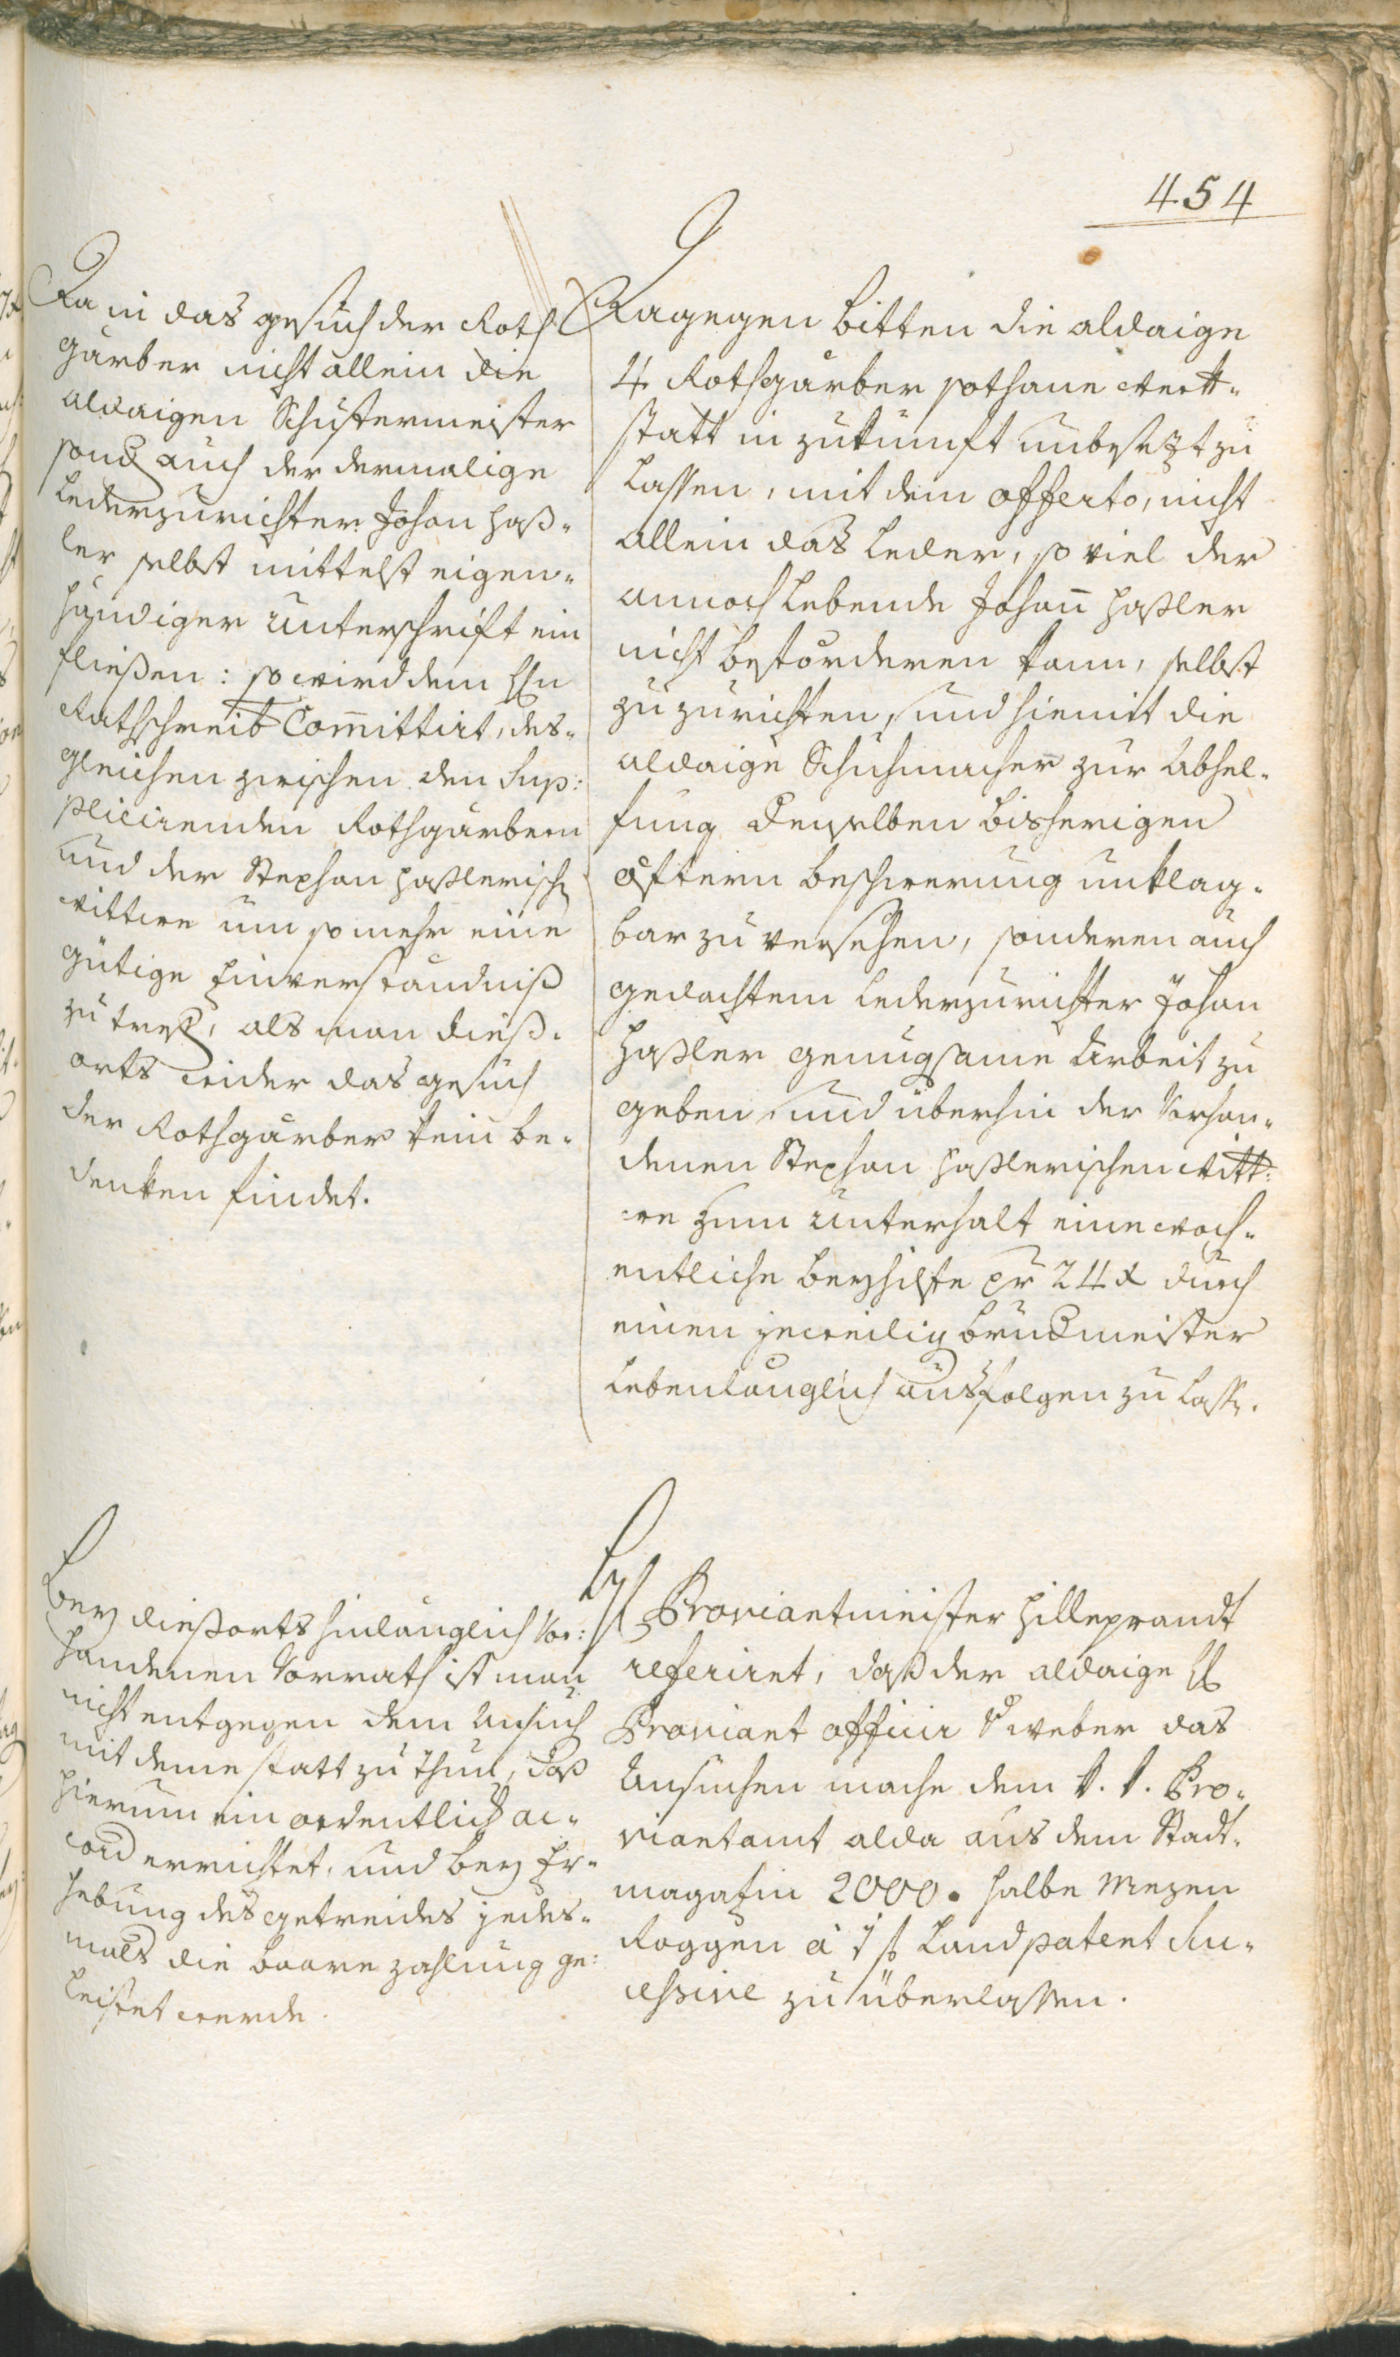 454
Da in das gesuch der Roth
gärber nicht allein die
aldaigen Schustermeister
sond. auch der dermalige
Lederzurichter Johan Haß-
ler selbst mittelst eigen-
händiger Unterschrift ein
fließen: so wird dem Hn
Rathschreib. Committirt, des-
gleichen zwischen den Sup:
plicirenden Rothgärbern
und der Stephan Haßlerisch.
Wittwe um so mehr eine
gütige Einverständniß
zu treff., als man dieß-
orts wider das gesuch
der Rothgärber kein be-
denken findet.
Dagegen bitten die aldaige
4 Rothgärber sothane Werk-
statt in zukunft unbesetzt zu
Lassen, mit dem offerto, nicht
allein das Leder, so viel der
annoch Lebende Johann Haßler
nicht beförderen kann, selbst
zuzurichten, und hiemit die
aldaige Schuhmacher zur Abhel-
fung derselben bisherigen
öfteren beschwerung unklag-
bar zu versehen, sonderen auch
gedachtem Lederzurichter Johan
Haßler genugsame Arbeit zu
geben, und überhin der Vorhan-
denen Stephan Haßlerischen Witt-
we zum Unterhalt eine woch-
entliche Beyhilfe pr 24 x durch
einen jeweilig. Bruckmeister
Lebenlänglich ausfolgen zu Lass.
Bey dießorts hinlänglich Vor:
handenen Vorrath ist man
nicht entgegen dem Ansuch.
mit deme statt zu thun, daß
hierum ein ordentlich. ac-
cord errichtet, und bey Er-
hebung des getreides jedes-
mals die baare zahlung ge:
leistet werde.
H Proviantmeister Hilleprandt
referiret, daß der aldaige H
Proviant officir v. Weber das
Ansuchen mache dem k. k. Pro-
viantamt alda aus dem Stadt-
magazin 2000. halbe Mezen
Roggen à 1 f Landpatent Suc-
cessive zu überlassen.